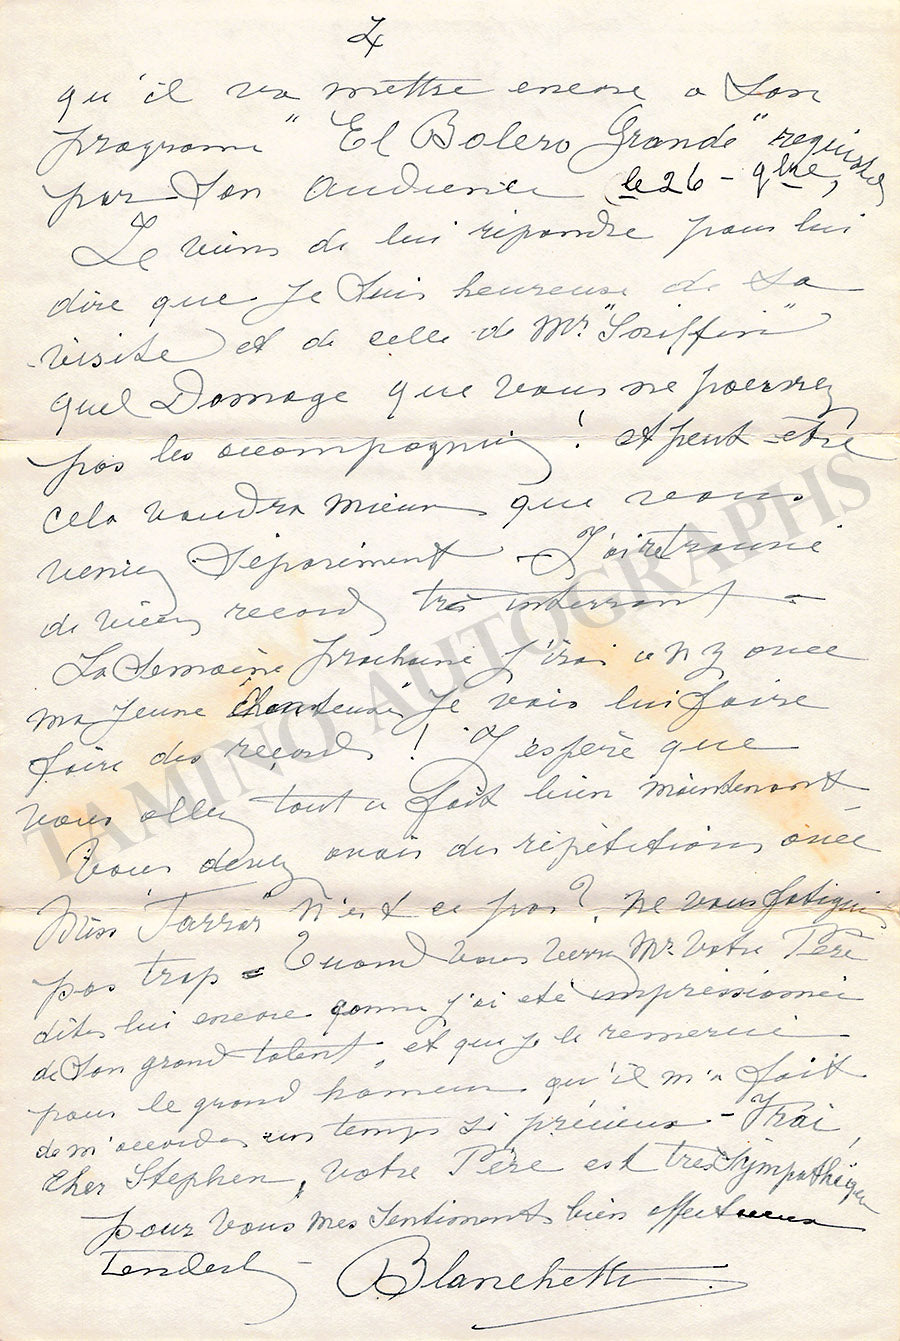 4
qu'il va mettre encore a son
programe "El Bolero Grande"
par son audience (le 26 -
Je viens de lui répondre pour lui
dire que je suis heureuse de sa
visite et de celle de Mr.
quel Domage que vous ne pouvez
pas les accompagnier ! et peut-etre
cela vaudra mieux que vous
veniez séparément - J'ai retrouvé
de vieux records très interrsant -
La semaine prochaine j'irai a N y avec
ma jeune "Chanteuse" je vais lui faire
faire des records ! J'espère que
vous allez tout a fait bien maintenant
Vous devez avoir des répétitions avec
Miss "Farrar" n'est ce pas? ne vous fatiguez
pas trop = Quand vous verrez Mr. votre Père
dites lui encore comme j'ai eté impressionnée
de son grand talent, et que je le remercie
pour le grand honneur qu'il m'a fait
de m'accorder un temps si précieux - Vrai,
cher Stephen, votre Père est très sympathique
pour vous mes sentiments bien affectueux
Tenderly - Blanchette
TAMINO AUTOGRAPHS